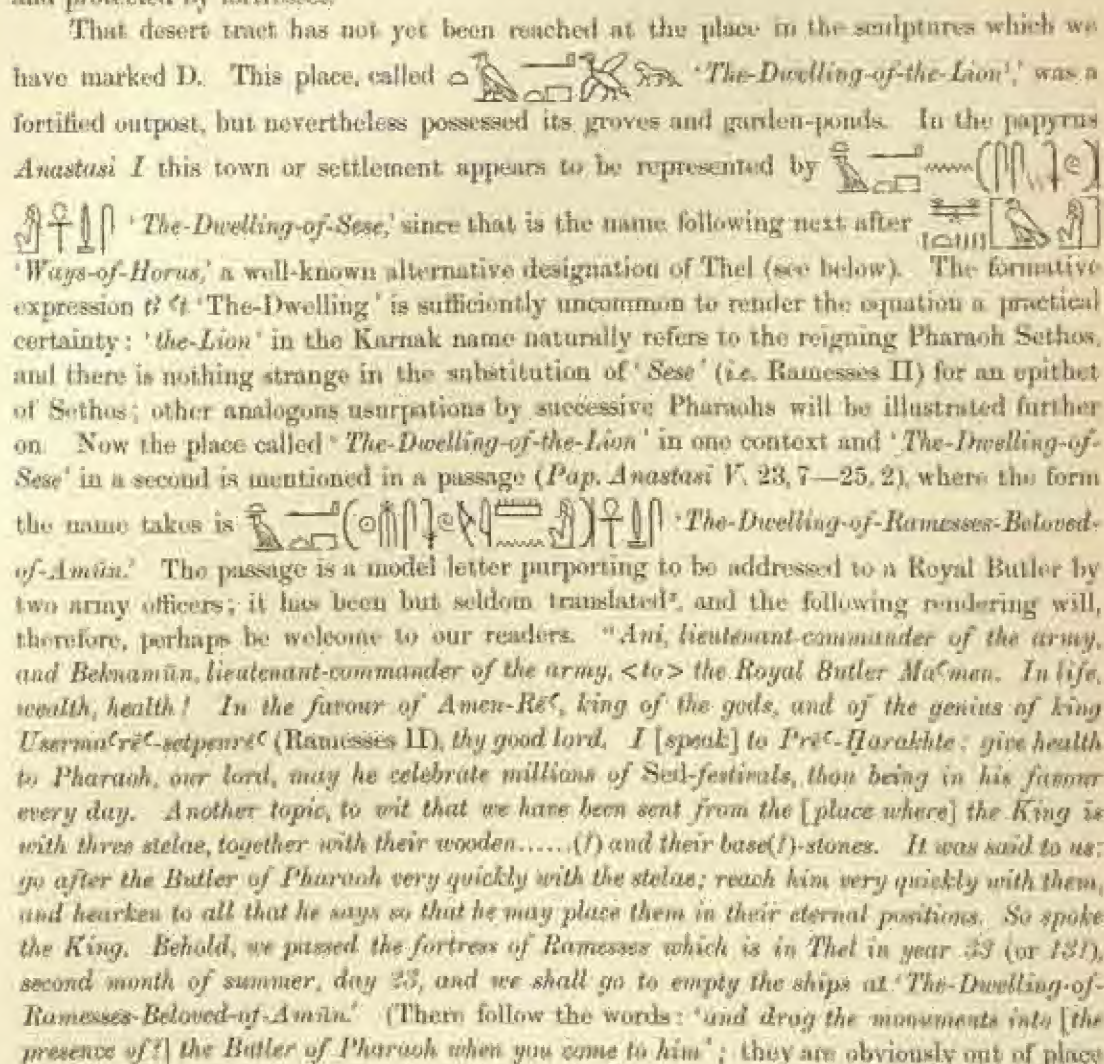 That desert tract has not yet been reached at the place in the sculptures which we
have marked D. This place, called 'The-Dwelling-of-the-Lion¹,' was a
fortified outpost, but nevertheless possessed its groves and garden-ponds. In the papyrus
Anastasi I this town or settlement appears to be represented by
'The-Dwelling-of-Sese,' since that is the name following next after
'Ways-of-Horus,' a well-known alternative designation of Thel (see below). The formative
expression tꜣ ꜥt 'The-Dwelling' is sufficiently uncommon to render the equation a practical
certainty: 'the-Lion' in the Karnak name naturally refers to the reigning Pharaoh Sethos,
and there is nothing strange in the substitution of 'Sese' (i.e. Ramesses II) for an epithet
of Sethos; other analogous usurpations by successive Pharaohs will be illustrated further
on. Now the place called 'The-Dwelling-of-the-Lion' in one context and 'The-Dwelling-of-
Sese' in a second is mentioned in a passage (Pap. Anastasi V. 23, 7—25, 2), where the form
the name takes is 'The-Dwelling-of-Ramesses-Beloved-
of-Amūn.' The passage is a model letter purporting to be addressed to a Royal Butler by
two army officers; it has been but seldom translated², and the following rendering will,
therefore, perhaps be welcome to our readers. "Ani, lieutenant-commander of the army,
and Beknamūn, lieutenant-commander of the army, <to> the Royal Butler Maꜥmen. In life,
wealth, health! In the favour of Amen-Rēꜥ, king of the gods, and of the genius of king
Usermaꜥrēꜥ-setpenrēꜥ (Ramesses II), thy good lord. I [speak] to Prēꜥ-Harakhte: give health
to Pharaoh, our lord, may he celebrate millions of Sed-festivals, thou being in his favour
every day. Another topic, to wit that we have been sent from the [place where] the King is
with three stelae, together with their wooden......(?) and their base(?)-stones. It was said to us:
go after the Butler of Pharaoh very quickly with the stelae; reach him very quickly with them,
and hearken to all that he says so that he may place them in their eternal positions. So spoke
the King. Behold, we passed the fortress of Ramesses which is in Thel in year 33 (or 13?),
second month of summer, day 23, and we shall go to empty the ships at 'The-Dwelling-of-
Ramesses-Beloved-of-Amūn.' (There follow the words: 'and drag the monuments into [the
presence of?] the Butler of Pharaoh when you come to him'; they are obviously out of place